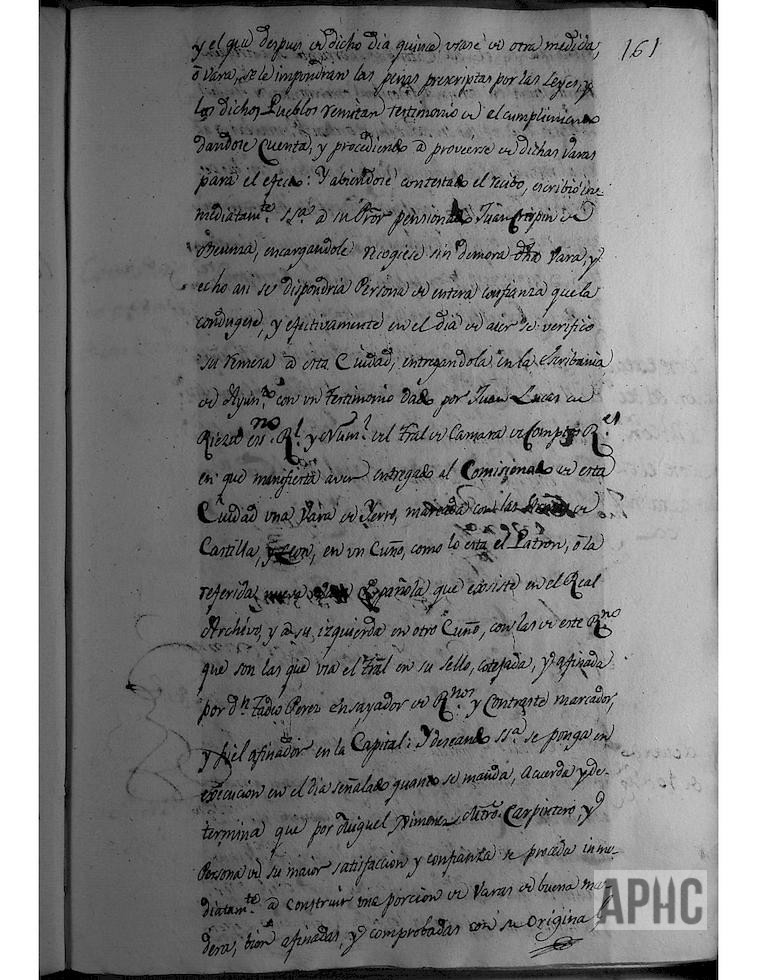 161
y el que despues de dicho dia quince usase de otra medida,
ô vara, se le impondran las penas prescriptas por las Leyes, y
los dichos Pueblos remitan testimonio de el cumplimiento
dandose Cuenta, y procediendo a proveerse de dichas Varas
para el efecto: Y abiendose contestado el recibo, escribio ine
mediatam.te S.Sa. a su Pror pensionado Juan Crispin de
Beunza, encargandole recogiese sin demora dha Vara, y
echo asi se dispondria Persona de entera confianza que la
condugese, y efectivamente en el dia de aier se verifico
su remesa a esta Ciudad, entregandola en la Escribania
de Ayun.to con un testimonio dado por Juan Lucas de
es.no R.l y Num.l del Tral de Camara de Comptos R.es
en que manifiesta aver entregado al Comisionado de esta
Ciudad una Vara de Yerro, marcada con las de
Castilla, y Leon, en un Cuño, como lo esta el Patron, ô la
referida Española que existe en el Real
Archivo, y a su izquierda en otro Cuño, con las de este R.no
que son las que usa el Tral en su sello, cotejada, y afinada
por d.n Tadeo Perez ensayador de R.nos y Contraste marcador,
y fiel afinador en la Capital: Y deseando S.Sa. se ponga en
execucion en el dia señalado quanto se manda, acuerda y de-
termina que por Miguel Ximenez Mtro. Carpintero, y
Persona de su maior satisfaccion y confianza se proceda inme-
diatam.te a construir una porcion de Varas de buena ma-
dera, bien afinadas, y comprobadas con su Original
APHC